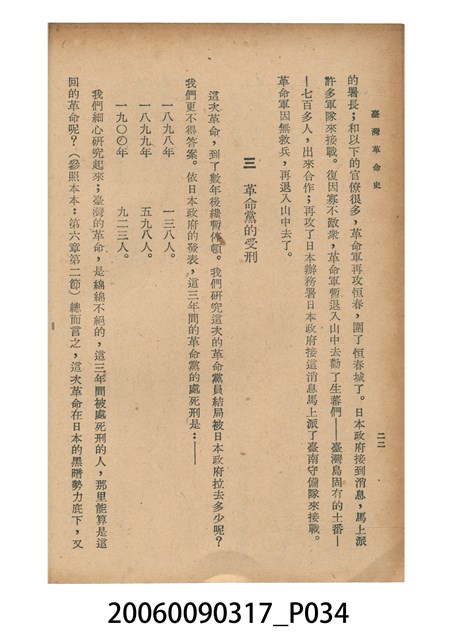 臺灣革命史
二二
的署長;和以下的官僚很多,革命軍再攻恒春,圍了恒春城了。日本政府接到消息,馬上派
許多軍隊來接戰。復因寡不敵衆,革命軍暫退入山中去勸了生蕃們——臺灣島固有的土番—
—七百多人,出來合作;再攻了日本辦務署日本政府接這消息馬上派了臺南守備隊來接戰。
革命軍因無救兵,再退入山中去了。
三 革命黨的受刑
這次革命,到了數年後纔暫停頓。我們研究這次的革命黨員結局被日本政府拉去多少呢?
我們更不得答案。依日本政府的發表,這三年間的革命黨的處死刑是:——
一八九八年 一三八人。
一八九九年 五九八人。
一九〇〇年 九二三人。
我們細心研究起來;臺灣的革命,是綿綿不絕的,這三年間被處死刑的人,那里能算是這
回的革命呢?(參照本本:第六章第二節)總而言之,這次革命在日本的黑暗勢力底下,又
20060090317_P034